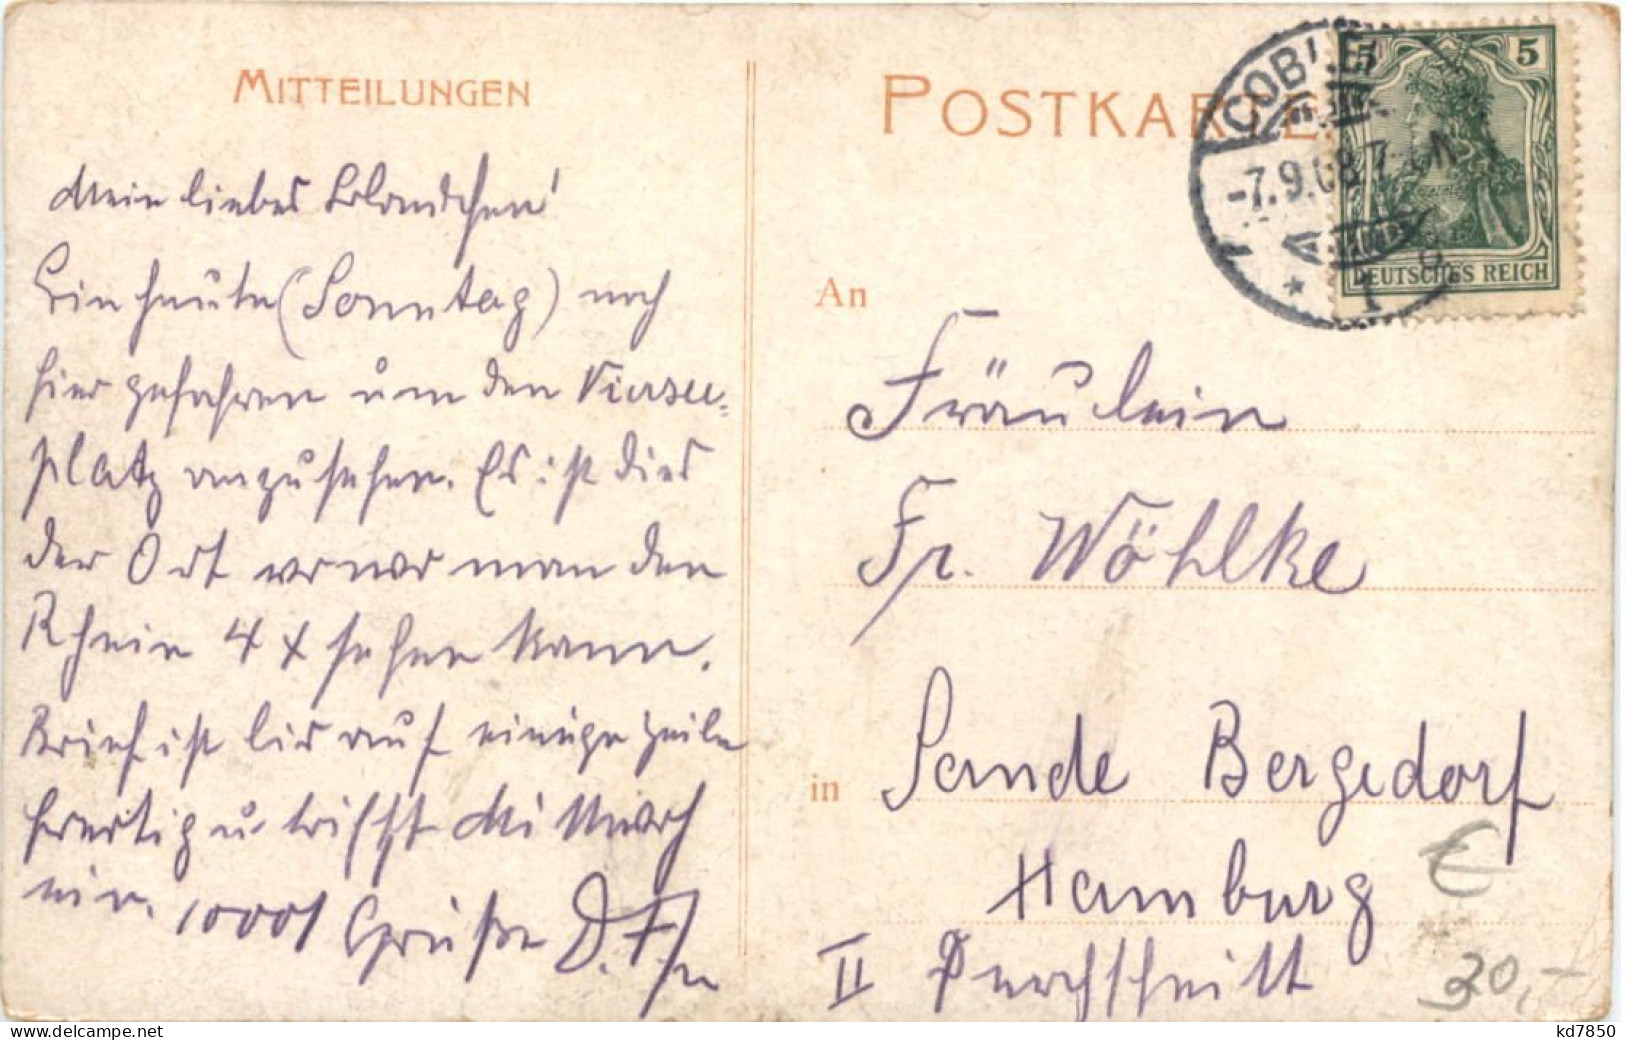 MITTEILUNGEN
Mein liebes
Bin heute (Sonntag) noch
hier gefahren um den Viersee-
platz anzusehen. Es ist dies
der Ort von wo man den
Rhein 4 x sehen kann.
Brief ist bis auf einige Zeile
fertig u. trifft Mittwoch
ein. 1000 Grüße D.
POSTKARTE
COBLENZ
-7.9.08.7-
* 1
5 5
DEUTSCHES REICH
An
Fräulein
Fr. Wöhlke
in Sande Bergedorf
Hamburg
II Durchschnitt
€
30,-
kd7850